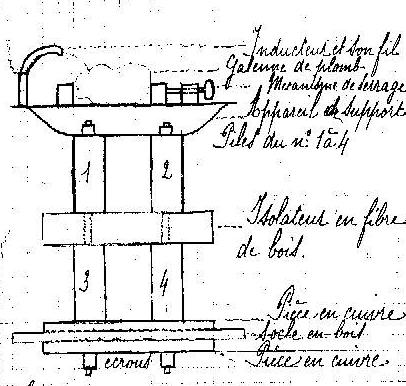 Inducteur et son fil
Galenne de plomb
Mecanisme de serrage
Appareil de support
Piles du n° 1 à 4
1
2
Isolateur en fibre
de bois.
3
4
Pièce en cuivre
Socle en bois
Pièce en cuivre
ecrous